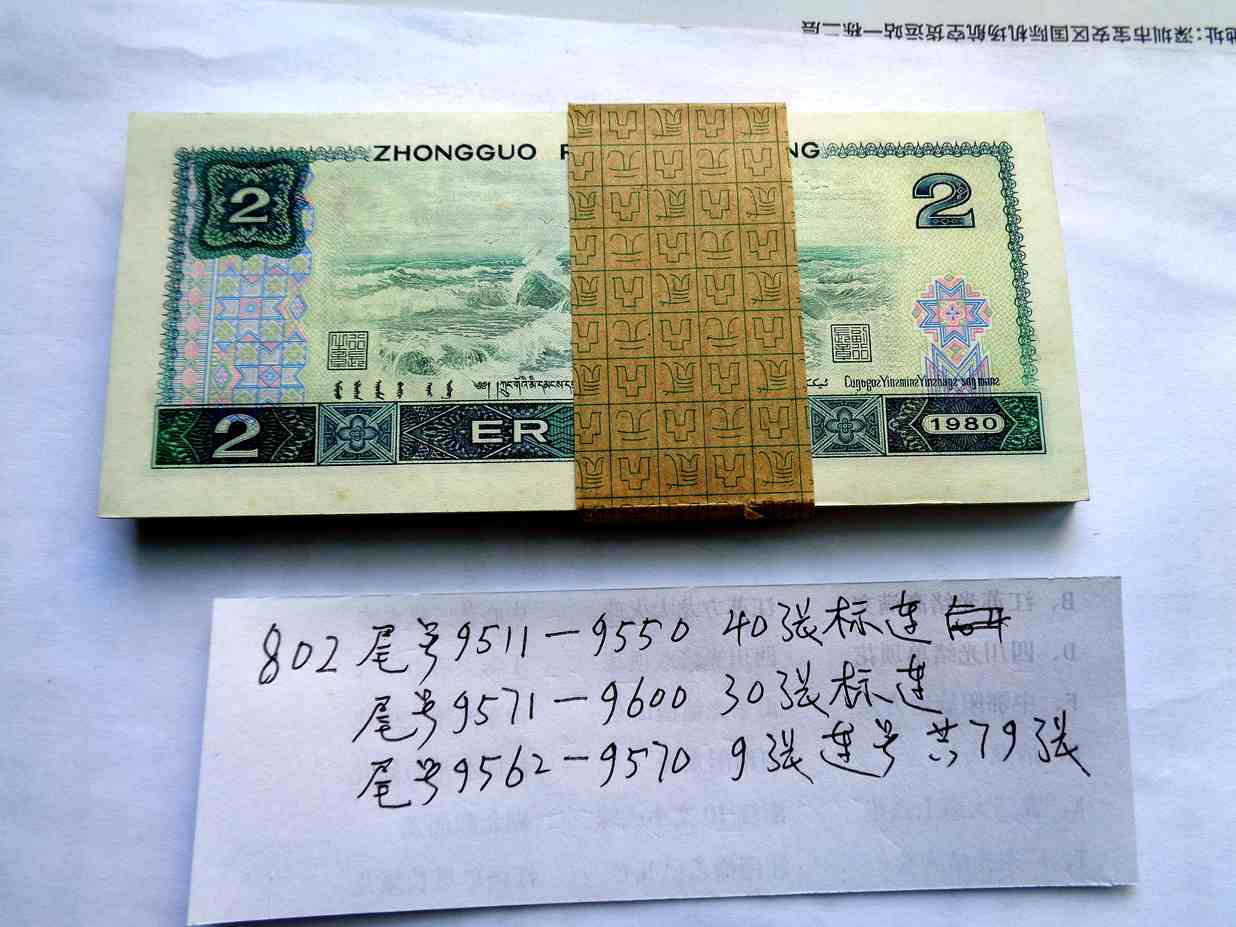 地址：深圳市宝安区国际机场航空货运站一栋二层
ZHONGGUO NG
2 2
行长之章 副行长章
CuŋgoguzYinzminzYinzhangz saŋ manz
2 ER 1980
802 尾号9511－9550 40张标连
尾号9571－9600 30张标连
尾号9562－9570 9张连号共79张